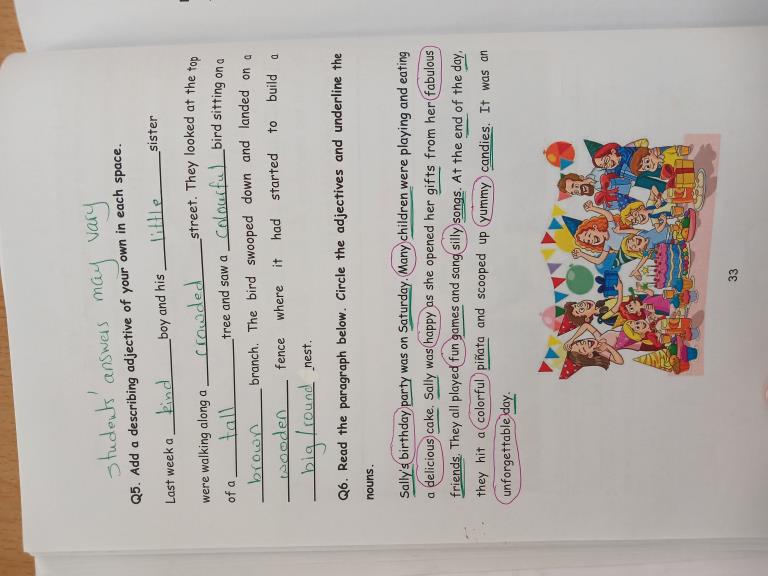 Students' answers may vary
Q5. Add a describing adjective of your own in each space.
Last week a kind boy and his little sister
were walking along a crowded street. They looked at the top
of a tall tree and saw a colourful bird sitting on a
brown branch. The bird swooped down and landed on a
wooden fence where it had started to build a
big/round nest.
Q6. Read the paragraph below. Circle the adjectives and underline the
nouns.
Sally's birthday party was on Saturday. Many children were playing and eating
a delicious cake. Sally was happy as she opened her gifts from her fabulous
friends. They all played fun games and sang silly songs. At the end of the day,
they hit a colorful piñata and scooped up yummy candies. It was an
unforgettable day.
33